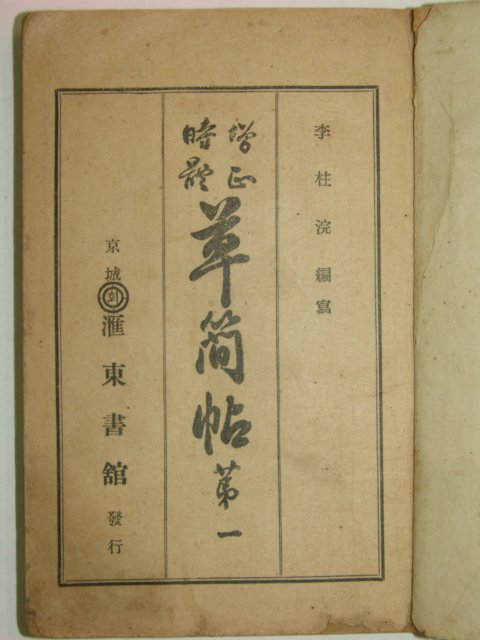 李柱浣編寫
增正
時體
草簡帖第一
京城
회
滙東書舘
發行